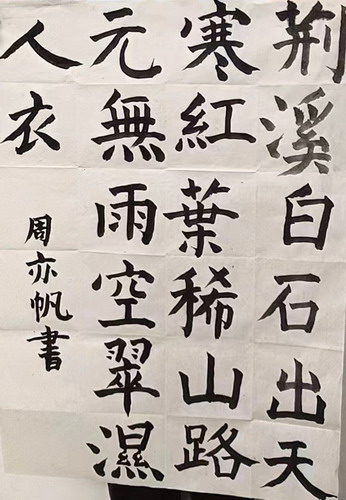 荆溪白石出天
寒紅葉稀山路
元無雨空翠濕
人衣
周亦帆書